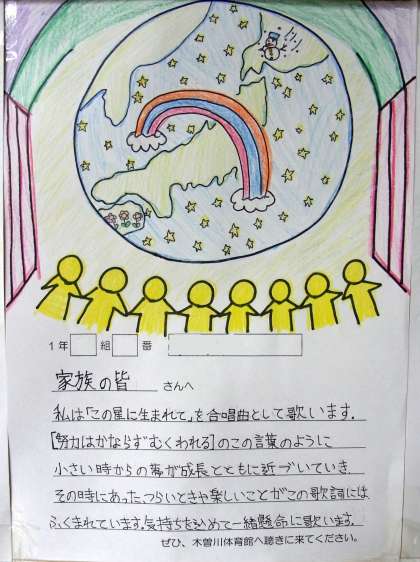 1年 組 番
家族の皆 さんへ
私は「この星に生まれて」を合唱曲として歌います。
[努力はかならずむくわれる]のこの言葉のように
小さい時からの夢が成長とともに近づいていき
その時にあったつらいときや楽しいことがこの歌詞には
ふくまれています。気持ちを込めて一緒懸命に歌います。
ぜひ、木曽川体育館へ聴きに来てください。